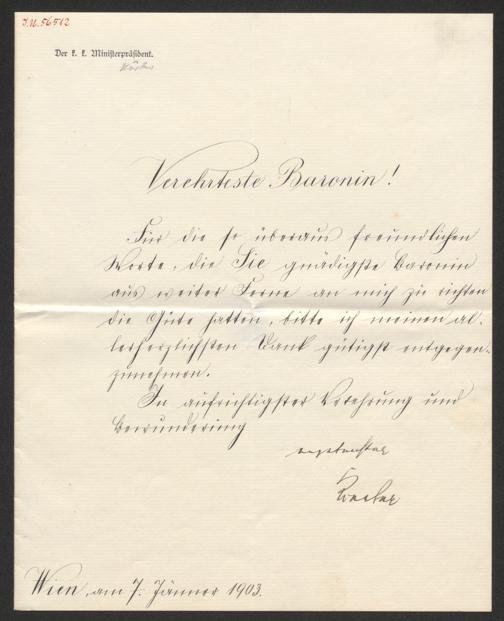 J.N. 56512
Der k. k. Ministerpräsident.
Körber
Verehrteste Baronin!
Für die so überaus freundlichen
Worte, die Sie gnädigste Baronin
aus weiter Ferne an mich zu richten
die Güte hatten, bitte ich meinen al-
lerherzlichsten Dank gütigst entgegen-
zunehmen.
In aufrichtigster Verehrung und
Bewunderung
ergebenster
Koerber
Wien, am 7. Jänner 1903.